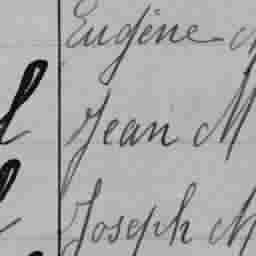 Eugène
Jean M
Joseph M